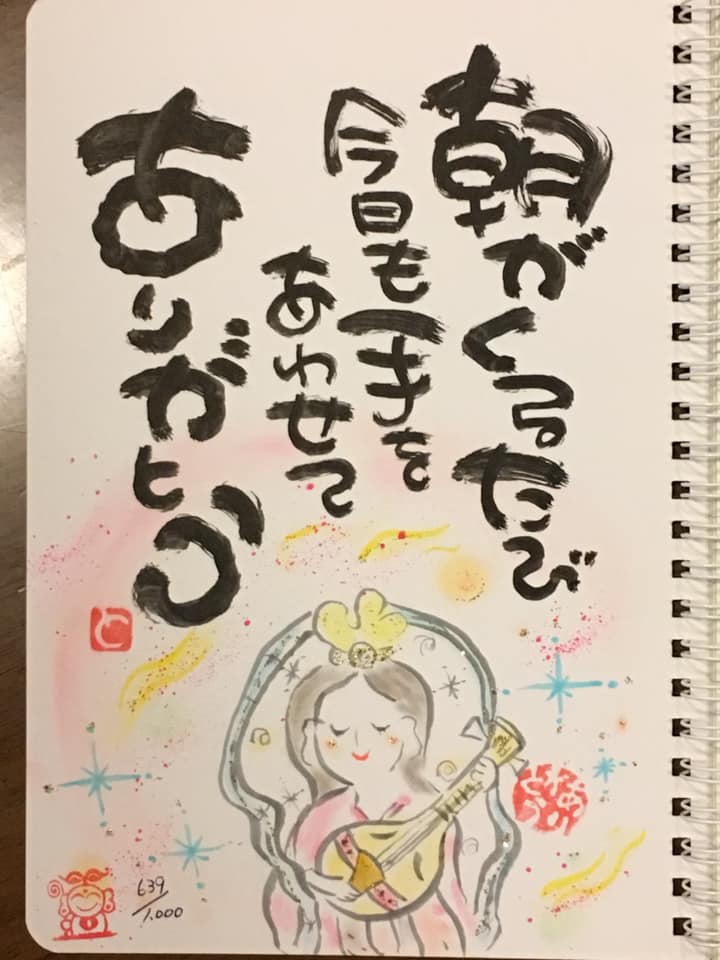 朝がくるたび
今日も手を
あわせて
ありがとう
と
639/1.000